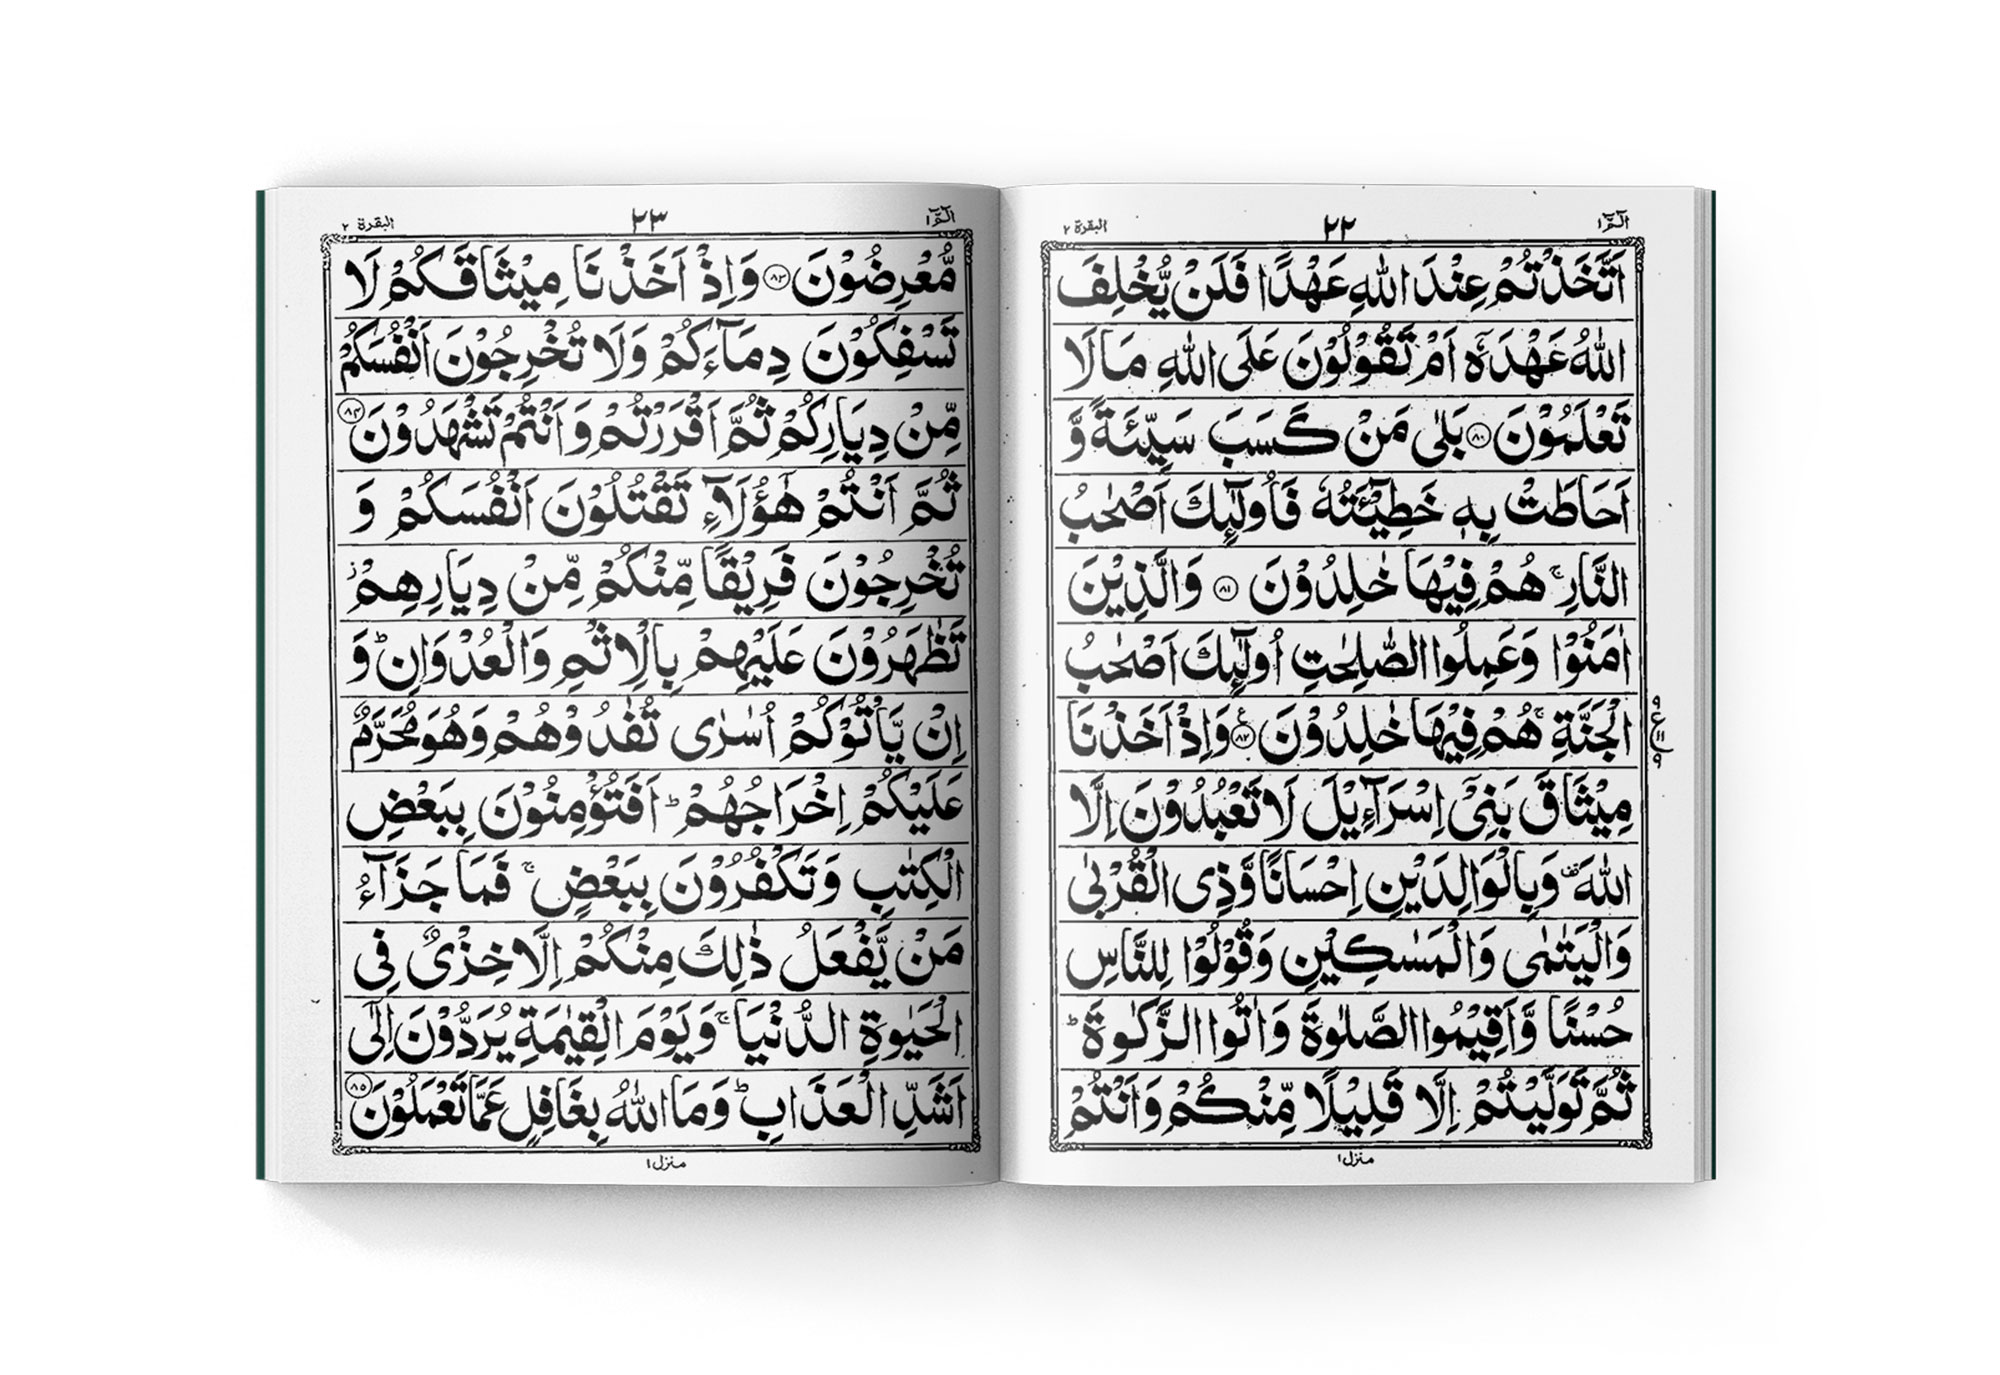 الٓمّٓ ١
٢٢
البقرة ٢
اَتَّخَذْتُمْ عِنْدَ اللّٰهِ عَهْدًا فَلَنْ يُّخْلِفَ
اللّٰهُ عَهْدَهٗۤ اَمْ تَقُوْلُوْنَ عَلَى اللّٰهِ مَا لَا
تَعْلَمُوْنَ ﴿٨٠﴾ بَلٰى مَنْ كَسَبَ سَيِّئَةً وَّ
اَحَاطَتْ بِهٖ خَطِيْٓـَٔتُهٗ فَاُولٰٓئِكَ اَصْحٰبُ
النَّارِ ۚ هُمْ فِيْهَا خٰلِدُوْنَ ﴿٨١﴾ وَالَّذِيْنَ
اٰمَنُوْا وَعَمِلُوا الصّٰلِحٰتِ اُولٰٓئِكَ اَصْحٰبُ
الْجَنَّةِ ۚ هُمْ فِيْهَا خٰلِدُوْنَ ﴿٨٢﴾ ع وَاِذْ اَخَذْنَا
٩
ع
١١
٩
مِيْثَاقَ بَنِيْۤ اِسْرَآءِيْلَ لَا تَعْبُدُوْنَ اِلَّا
اللّٰهَ ۫ وَبِالْوَالِدَيْنِ اِحْسَانًا وَّذِى الْقُرْبٰى
وَالْيَتٰمٰى وَالْمَسٰكِيْنِ وَقُوْلُوْا لِلنَّاسِ
حُسْنًا وَّاَقِيْمُوا الصَّلٰوةَ وَاٰتُوا الزَّكٰوةَ ؕ
ثُمَّ تَوَلَّيْتُمْ اِلَّا قَلِيْلًا مِّنْكُمْ وَاَنْتُمْ
منزل ١
الٓمّٓ ١
٢٣
البقرة ٢
مُّعْرِضُوْنَ ﴿٨٣﴾ وَاِذْ اَخَذْنَا مِيْثَاقَكُمْ لَا
تَسْفِكُوْنَ دِمَآءَكُمْ وَلَا تُخْرِجُوْنَ اَنْفُسَكُمْ
مِّنْ دِيَارِكُمْ ثُمَّ اَقْرَرْتُمْ وَاَنْتُمْ تَشْهَدُوْنَ ﴿٨٤﴾
ثُمَّ اَنْتُمْ هٰٓؤُلَآءِ تَقْتُلُوْنَ اَنْفُسَكُمْ وَ
تُخْرِجُوْنَ فَرِيْقًا مِّنْكُمْ مِّنْ دِيَارِهِمْ ز
تَظٰهَرُوْنَ عَلَيْهِمْ بِالْاِثْمِ وَالْعُدْوَانِ ؕ وَ
اِنْ يَّاْتُوْكُمْ اُسٰرٰى تُفٰدُوْهُمْ وَهُوَ مُحَرَّمٌ
عَلَيْكُمْ اِخْرَاجُهُمْ ؕ اَفَتُؤْمِنُوْنَ بِبَعْضِ
الْكِتٰبِ وَتَكْفُرُوْنَ بِبَعْضٍ ۚ فَمَا جَزَآءُ
مَنْ يَّفْعَلُ ذٰلِكَ مِنْكُمْ اِلَّا خِزْىٌ فِى
الْحَيٰوةِ الدُّنْيَا ۚ وَيَوْمَ الْقِيٰمَةِ يُرَدُّوْنَ اِلٰٓى
اَشَدِّ الْعَذَابِ ؕ وَمَا اللّٰهُ بِغَافِلٍ عَمَّا تَعْمَلُوْنَ ﴿٨٥﴾
منزل ١